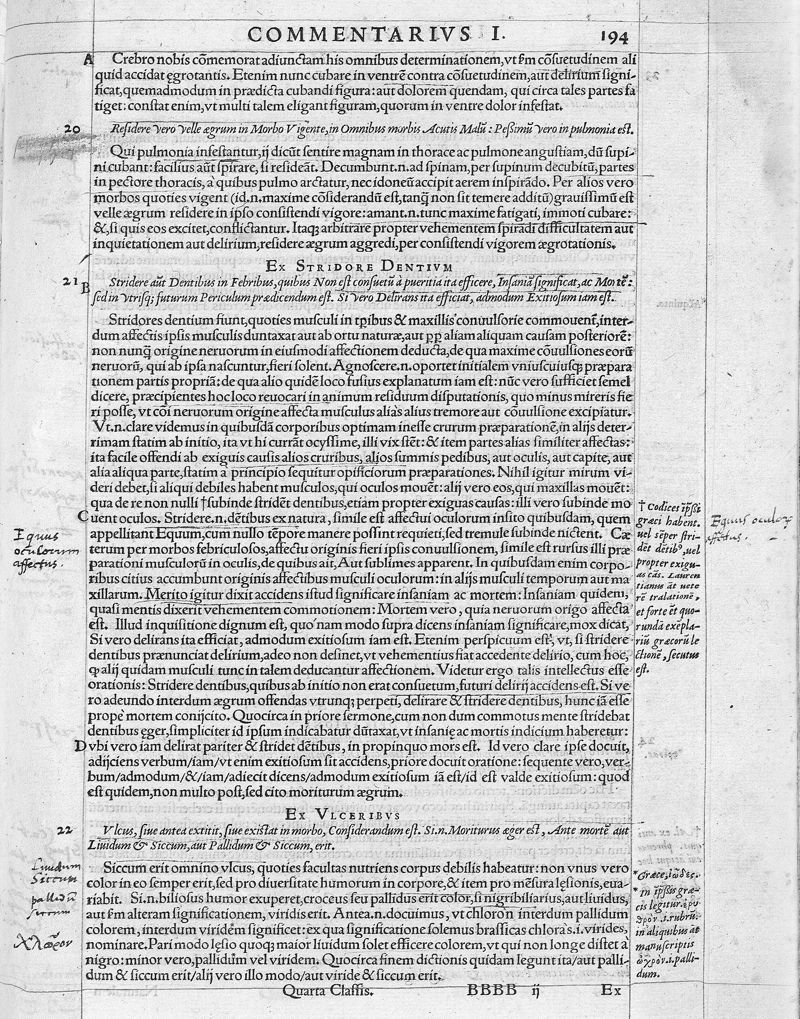 COMMENTARIVS I. 194
A Crebro nobis cõmemorat adiunctam his omnibus determinationem, vt ſm cõſuetudinem ali
quid accidat ęgrotantis. Etenim nunc cubare in ventrẽ contra cõſuetudinem, aut delirium ſigni-
ficat, quemadmodum in prædicta cubandi figura: aut dolorem quendam, qui circa tales partes fa
tiget: conſtat enim, vt multi talem eligant figuram, quorum in ventre dolor infeſtat.
20 Reſidere vero velle ægrum in Morbo Vigente, in Omnibus morbis Acutis Malũ: Peſſimũ vero in pulmonia eſt.
Qui pulmonia infeſtantur, ij dicũt ſentire magnam in thorace ac pulmone anguſtiam, dũ ſupi-
ni cubant: facilius aũt ſpirare, ſi reſideãt. Decumbunt .n. ad ſpinam, per ſupinum decubitũ, partes
in pectore thoracis, a quibus pulmo arctatur, nec idoneũ accipit aerem inſpirãdo. Per alios vero
morbos quoties vigent (id .n. maxime cõſiderandũ eſt, tanq̃ non ſit temere additũ) grauiſſimũ eſt
velle ægrum reſidere in ipſo conſiſtendi vigore: amant .n. tunc maxime fatigati, immoti cubare:
&, ſi quis eos excitet, conflictantur. Itaq; arbitrare propter vehementem ſpirãdi difficultatem aut
inquietationem aut delirium, reſidere ægrum aggredi, per conſiſtendi vigorem ægrotationis.
EX STRIDORE DENTIVM
21 B Stridere aũt Dentibus in Febribus, quibus Non eſt conſuetũ à pueritia ita efficere, Inſaniã ſignificat, ac Mortẽ:
ſed in vtriſq; futurum Periculum prædicendum eſt. Si vero Delirans ita efficiat, admodum Exitioſum iam eſt.
Stridores dentium fiunt, quoties muſculi in tp̃ibus & maxillis conuulſorie commouent̃, inter-
dum affectis ipſis muſculis duntaxat aut ab ortu naturæ, aut pp̃ aliam aliquam cauſam poſteriorẽ:
non nunq̃ origine neruorum in eiuſmodi affectionem deducta, de qua maxime cõuulſiones eorũ
neruorũ, qui ab ipſa naſcuntur, fieri ſolent. Agnoſcere .n. oportet initialem vniuſcuiuſq; præpara
tionem partis propriã: de qua alio quidẽ loco fuſius explanatum iam eſt: nũc vero ſufficiet ſemel
dicere, præcipientes hoc loco reuocari in animum reſiduum diſputationis, quo minus mireris fie
ri poſſe, vt cõi neruorum origine affecta muſculus alias alius tremore aut cõuulſione excipiatur.
Vt .n. clare videmus in quibuſdã corporibus optimam ineſſe crurum præparationẽ, in alijs deter-
rimam ſtatim ab initio, ita vt hi currãt ocyſſime, illi vix ſtẽt: & item partes alias ſimiliter affectas:
ita facile offendi ab exiguis cauſis alios cruribus, alios ſummis pedibus, aut oculis, aut capite, aut
alia aliqua parte, ſtatim a principio ſequitur opificiorum præparationes. Nihil igitur mirum vi-
deri debet, ſi aliqui debiles habent muſculos, qui oculos mouẽt: alij vero eos, qui maxillas mouẽt:
qua de re non nulli † ſubinde ſtridẽt dentibus, etiam propter exiguas cauſas: illi vero ſubinde mo
C uent oculos. Stridere .n. dẽtibus ex natura, ſimile eſt affectui oculorum inſito quibuſdam, quem
appellitant Equum, cum nullo tẽpore manere poſſint requieti, ſed tremule ſubinde nictent. Cæ
terum per morbos febriculoſos, affectu originis fieri ipſis conuulſionem, ſimile eſt rurſus illi præ
parationi muſculorũ in oculis, de quibus ait, Aut ſublimes apparent. In quibuſdam enim corpo-
ribus citius accumbunt originis affectibus muſculi oculorum: in alijs muſculi temporum aut ma
xillarum. Merito igitur dixit accidens iſtud ſignificare inſaniam ac mortem: Inſaniam quidem,
quaſi mentis dixerit vehementem commotionem: Mortem vero, quia neruorum origo affecta
eſt. Illud inquiſitione dignum eſt, quo nam modo ſupra dicens inſaniam ſignificare, mox dicat,
Si vero delirans ita efficiat, admodum exitioſum iam eſt. Etenim perſpicuum eſt, vt, ſi ſtridere
dentibus prænunciat delirium, adeo non deſinet, vt vehementius fiat accedente delirio, cum hoc,
ꝙ alij quidam muſculi tunc in talem deducantur affectionem. Videtur ergo talis intellectus eſſe
orationis: Stridere dentibus, quibus ab initio non erat conſuetum, futuri delirij accidens eſt. Si ve
ro adeundo interdum ægrum offendas vtrunq; perpeti, delirare & ſtridere dentibus, hunc iã eſſe
prope mortem conijcito. Quocirca in priore ſermone, cum non dum commotus mente ſtridebat
dentibus ęger, ſimpliciter id ipſum indicabatur dũtaxat, vt inſanię ac mortis indicium haberetur:
D vbi vero iam delirat pariter & ſtridet dẽtibus, in propinquo mors eſt. Id vero clare ipſe docuit,
adijciens verbum /iam/ vt enim exitioſum ſit accidens, priore docuit oratione: ſequente vero, ver-
bum /admodum/ &/iam/ adiecit dicens /admodum exitioſum iã eſt/ id eſt valde exitioſum: quod
eſt quidem, non multo poſt, ſed cito moriturum ægrum.
EX VLCERIBVS
22 Vlcus, ſiue antea extitit, ſiue exiſtat in morbo, Conſiderandum eſt. Si .n. Moriturus æger eſt, Ante mortẽ aut
Liuidum & Siccum, aut Pallidum & Siccum, erit.
Siccum erit omnino vlcus, quoties facultas nutriens corpus debilis habeatur: non vnus vero
color in eo ſemper erit, ſed pro diuerſitate humorum in corpore, & item pro mẽſura lęſionis, eua-
riabit. Si .n. bilioſus humor exuperet, croceus ſeu pallidus erit color, ſi nigribiliarius, aut liuidus,
aut ſm alteram ſignificationem, viridis erit. Antea .n. docuimus, vt chloron interdum pallidum
colorem, interdum viridẽm ſignificet: ex qua ſignificatione ſolemus braſſicas chloras .i. virides,
nominare. Pari modo lęſio quoq; maior liuidum ſolet efficere colorem, vt qui non longe diſtet à
nigro: minor vero, pallidũm vel viridem. Quocirca finem dictionis quidam legunt ita /aut palli-
dum & ſiccum erit/ alij vero illo modo /aut viride & ſiccum erit.
Quarta Claſſis. BBBB ij Ex
† Codices ip̃ſi
græci habent,
uel sẽper ſtri-
dẽt dẽtibꝰ, uel
propter exigu-
as cãs. Lauren
tianus ãt uete
rẽ tralationẽ,
et forte ẽt quo-
rundã exẽpla-
riũ græcorũ le
ctionẽ, ſecutus
eſt.
*Græce,
* In ip̃ſis græ-
cis legitur,
.i. rubrũ:
in aliquibus ãt
manuſcriptis
ὠχρὸν .i. palli-
dum.
Equus
oculorum
affectus.
Equus oculorum
affectus.
Liuidum
Siccum
pallidũ
siccum
χλωρον